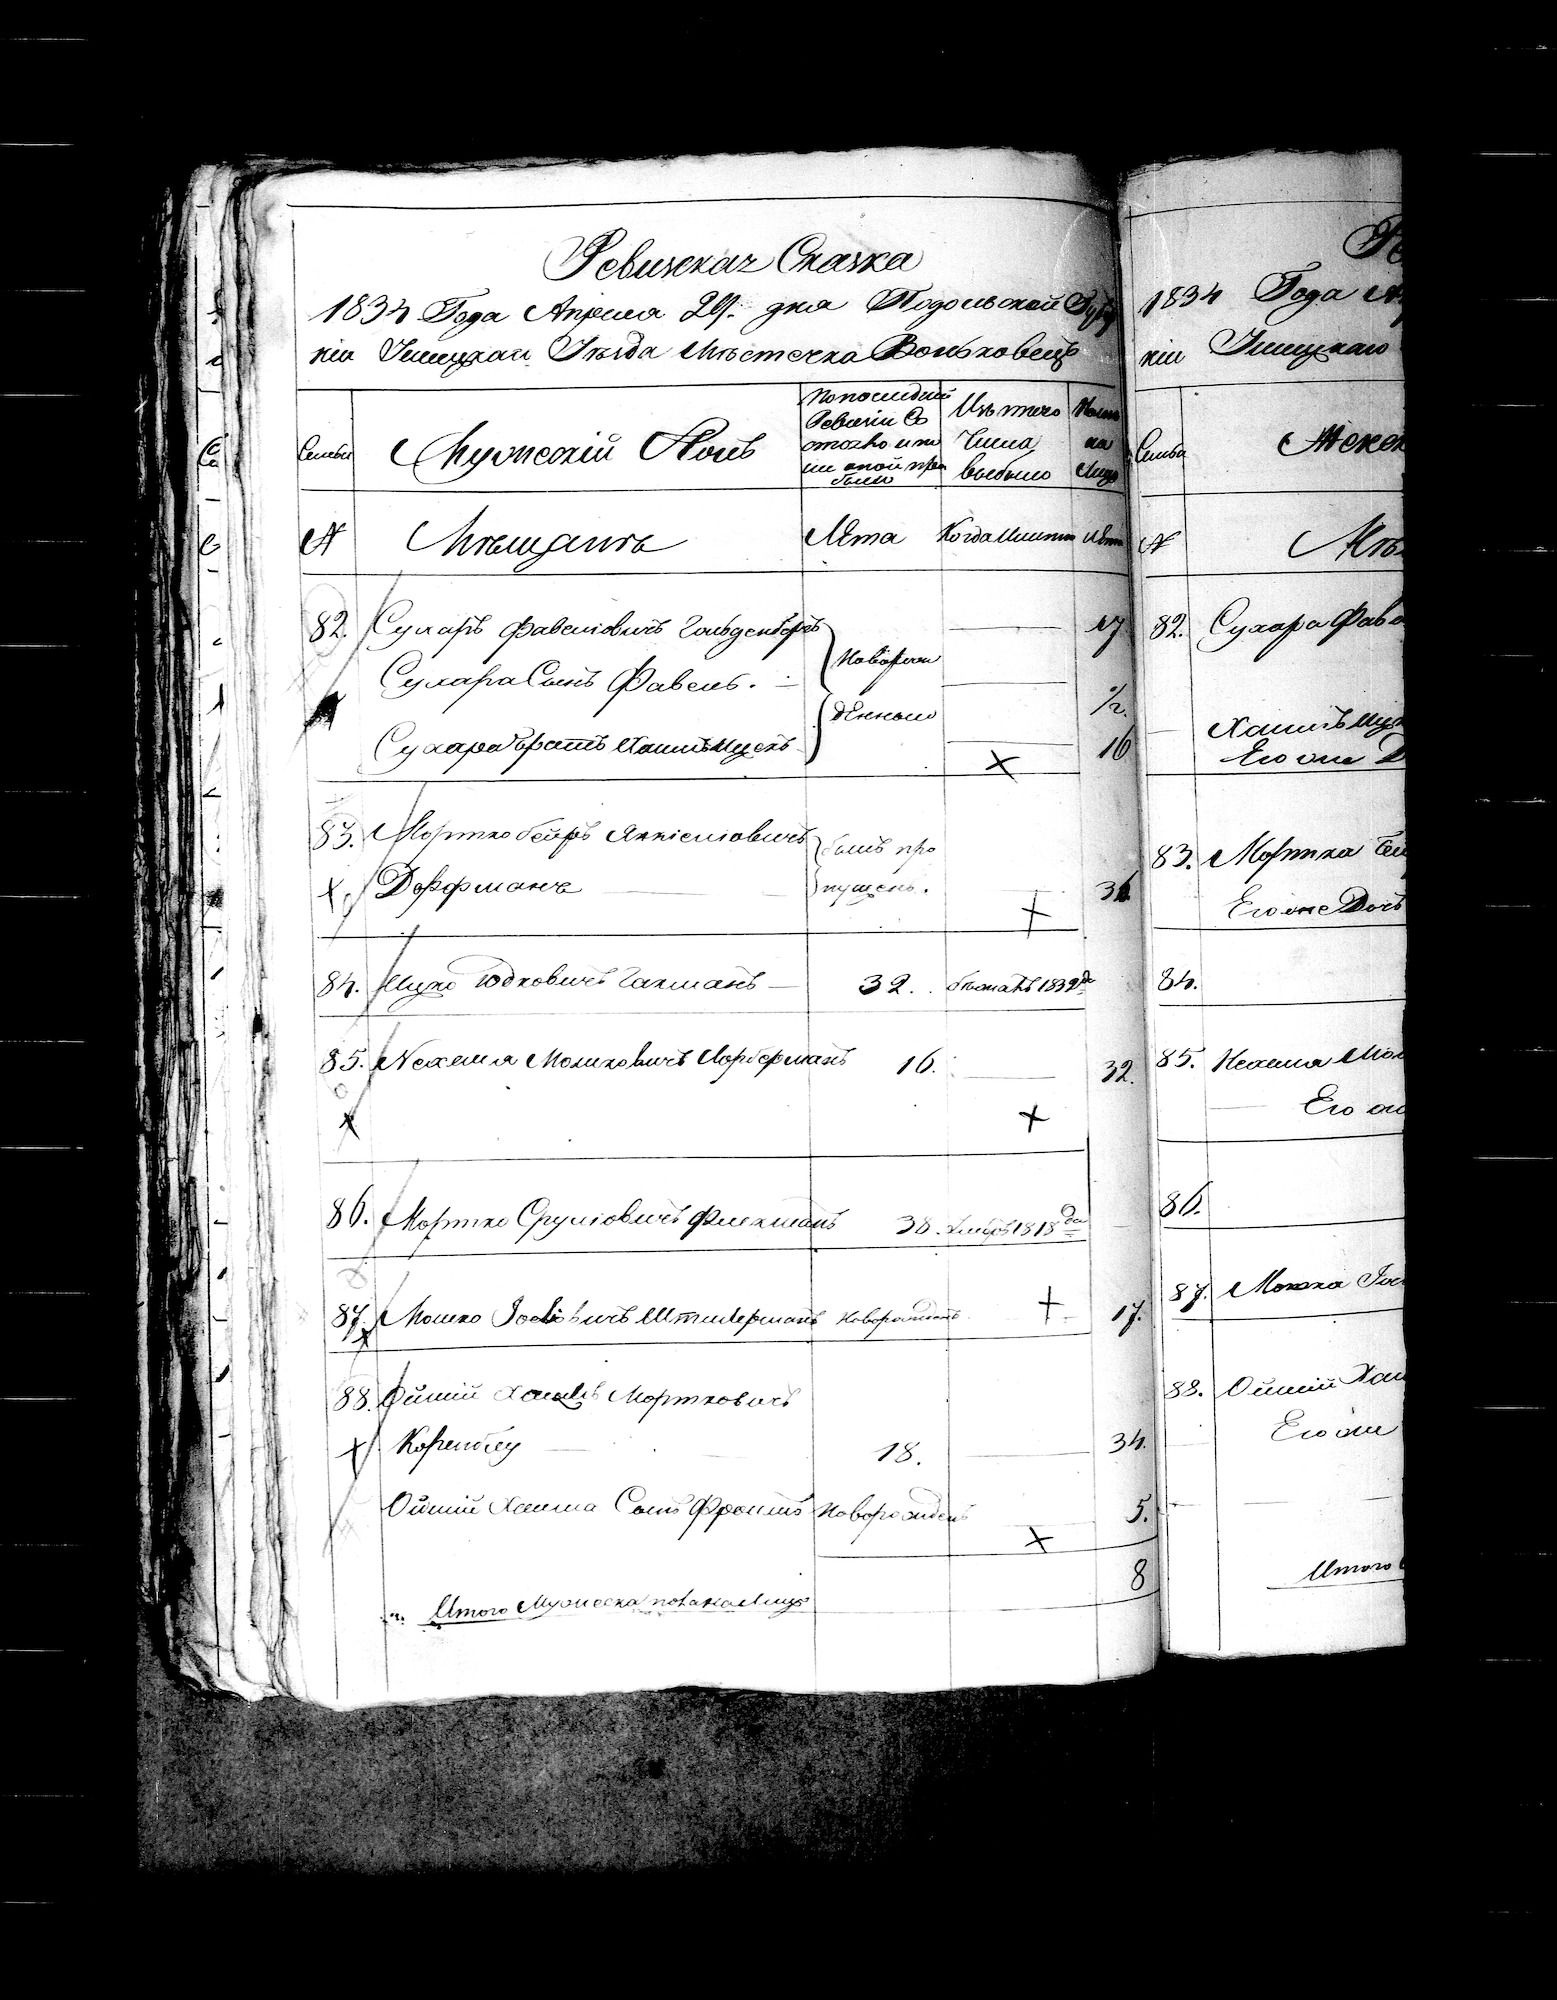 Ревизская Сказка
1834 Года Апреля 29. дня Подольской Губер
ніи Ушицкаго Уѣзда Мѣстечка Воньковецъ
Семьи
Мужескій Полъ
По последней
Ревизіи Со
стояло и по
былo
Изъ того
Числа
выбыло
Ныне
на
Лицо
№
Мѣщанъ
Лѣта
Когда именно
Лѣта
82. Сухаръ Фавелiовичъ Гольденбергъ 17
Сухара Сынъ Фавель. 1/2.
новорож
денные
Сухара братъ Хаимъ Ицекъ 16
83. Мортко беиръ Янкіеліовичъ
былъ про
Дорфманъ
пущенъ. 36
84. Ицко Юдковичъ Гакманъ 32. 1832 да
85. Нехемя Мошковичъ Лорберманъ 16. 32.
86. Мортко Сруліовичъ 38. умеръ 1818 да
87. Мошко Іосiовичъ Штилерманъ новорожденъ 17.
88. Ойшій Хаимъ Мортковичъ
Коренблу 18. 34.
Ойшій Хаима Сынъ Фроимъ новорожденъ 5.
Итого Мужеска пола на Лицо 8
1834 Года Ап
ніи Ушицкаго
Семьи
Женск
№
Мѣ
82. Сухара Фаве
Хаимъ Иц
Его же Д
83. Мортка Беи
Его же Дочь
84.
85. Нехемя Мош
Его же
86.
87. Мошка Іос
88. Ойшій Хаи
Его же
Итого